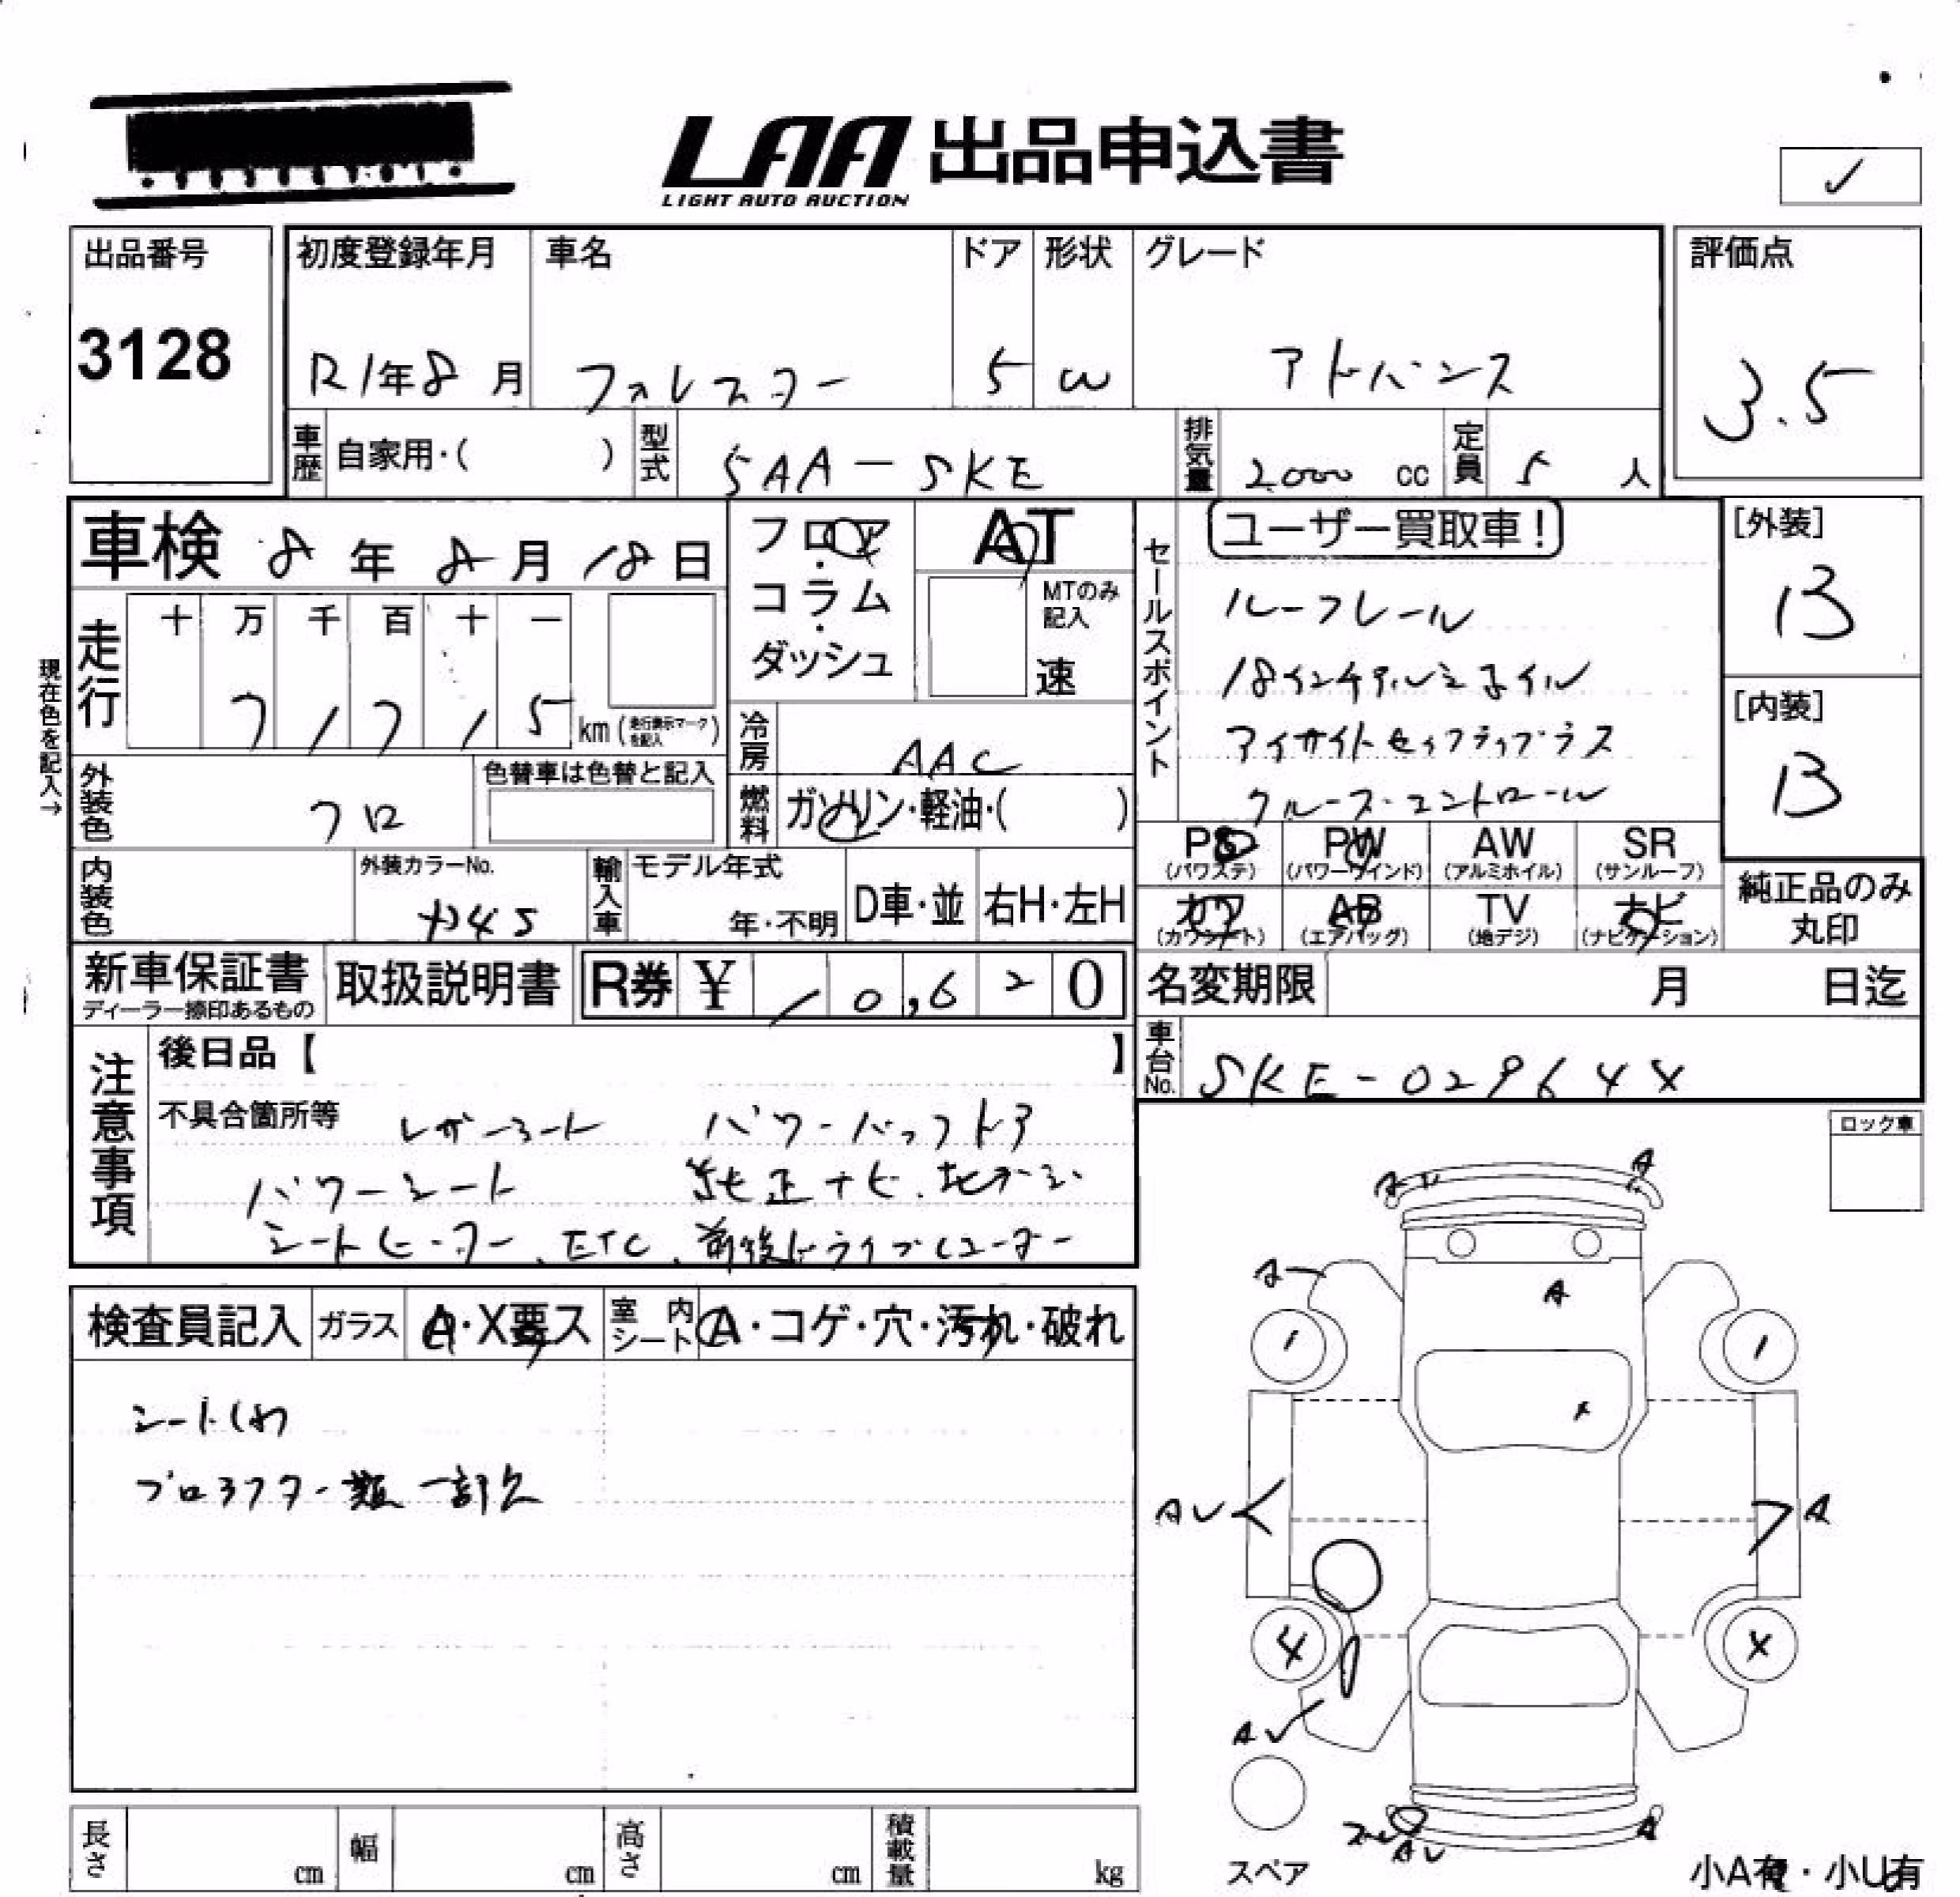 LAA 出品申込書
LIGHT AUTO AUCTION
✓
出品番号
3128
初度登録年月
R1年8月
車名
フォレスター
ドア
5
形状
W
グレード
アドバンス
評価点
3.5
車歴 自家用・( )
型式 5AA-SKE
排気量 2000 cc
定員 5 人
車検 8年8月18日
フロア・コラム・ダッシュ
AT
MTのみ記入
速
走行 十万千百十一
71715 km (走行表示マークを記入)
現在色を記入→
冷房 AAC
外装色 クロ
色替車は色替と記入
燃料 ガソリン・軽油・( )
セールスポイント
ユーザー買取車!
ルーフレール
18インチアルミホイル
アイサイトセイフティプラス
クルーズコントロール
[外装]
B
[内装]
B
PS (パワステ) PW (パワーウインド) AW (アルミホイル) SR (サンルーフ)
カワ (カワシート) AB (エアバッグ) TV (地デジ) ナビ (ナビゲーション)
純正品のみ丸印
内装色
外装カラーNo.
輸入車 モデル年式 年・不明 D車・並 右H・左H
新車保証書
ディーラー捺印あるもの
取扱説明書
R券 ¥ 10,620
名変期限 月 日迄
車台No. SKE-02964X
注意事項
後日品【 】
不具合箇所等 レザーシート パワーバックドア
パワーシート 純正ナビ、地デジ
シートヒーター、ETC、前後ドライブレコーダー
ロック車
検査員記入 ガラス A・X要ス 室内シート A・コゲ・穴・汚れ・破れ
シートしわ
プロテクター類一部欠
A
A
A
AV
A
4
X
AV
AV
A
スペア
小A有・小U有
長さ cm 幅 cm 高さ cm 積載量 kg